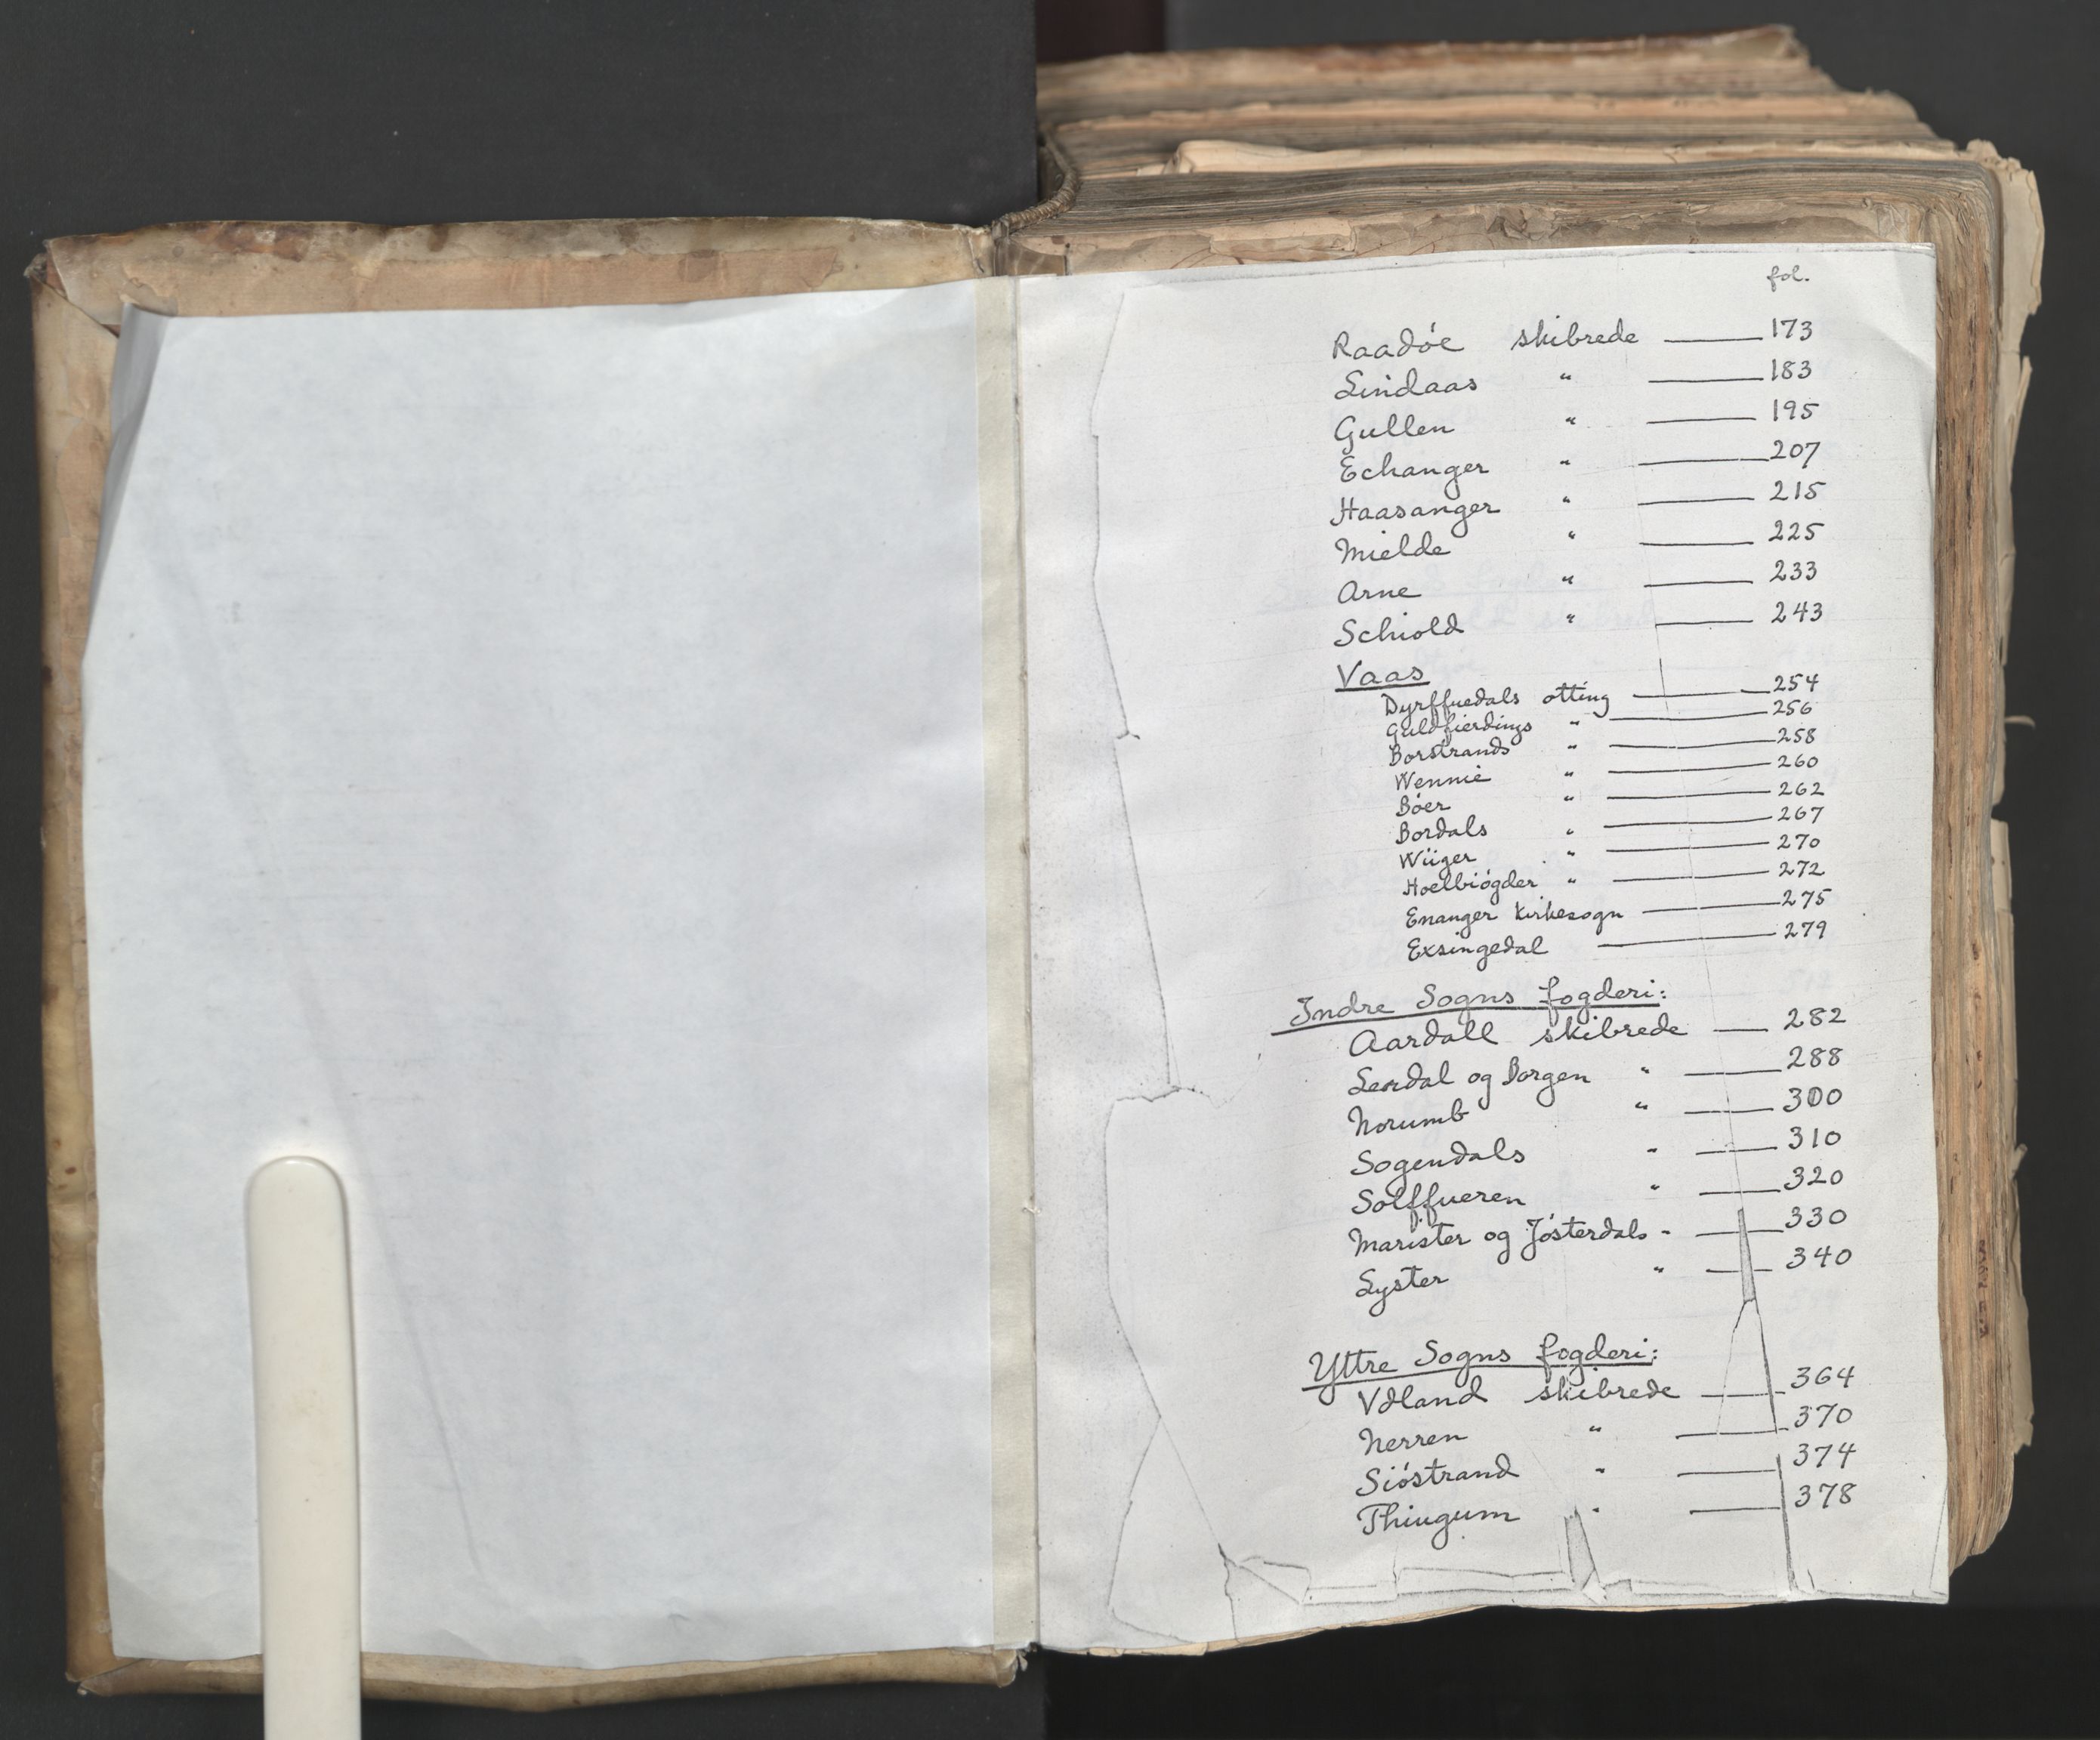 fol.
Raadóe skibrede — 173
Lindaas " — 183
Gullen " — 195
Echanger " — 207
Haasanger " — 215
Mielde " — 225
Arne " — 233
Schiold " — 243
Vaas
Dyrffuedals otting — 254
Guldfierdings " — 256
Borstrands " — 258
Wennie " — 260
Bóer " — 262
Bordals " — 267
Wiiger " — 270
Hoelbiógder " — 272
Enanger Kirkesogn — 275
Exsingedal — 279
Indre Sogns fogderi:
Aardall skibrede — 282
Lerdal og Borgen " — 288
Norumb " — 300
Sogendals " — 310
Solffueren " — 320
Marister og Jósterdals " — 330
Lyster " — 340
Yttre Sogns fogderi:
Vdland skibrede — 364
Nerren " — 370
Sióstrand " — 374
Thingum " — 378